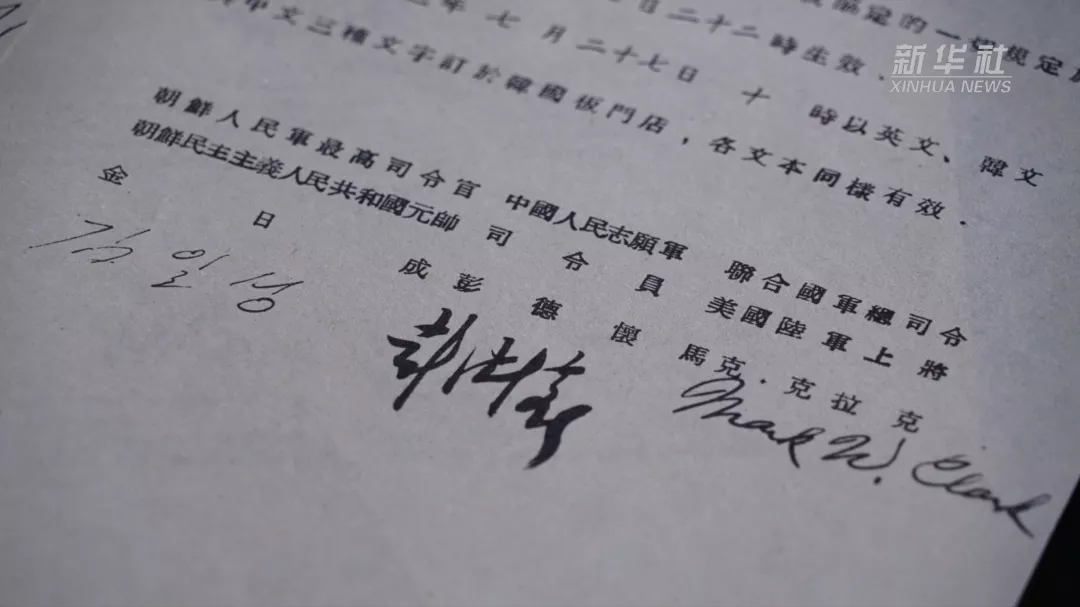 新华社
XINHUA NEWS
定的一切規定
日二十二時生效.
年七月二十七日 十 時以英文、韓文
中文三種文字訂於韓國板門店，各文本同樣有效.
朝鮮人民軍最高司令官 中國人民志願軍 聯合國軍總司令
朝鮮民主主義人民共和國元帥 司令員 美國陸軍上將
金日成 彭德懷 馬克·克拉克
김일성 彭德懷 Mark W. Clark